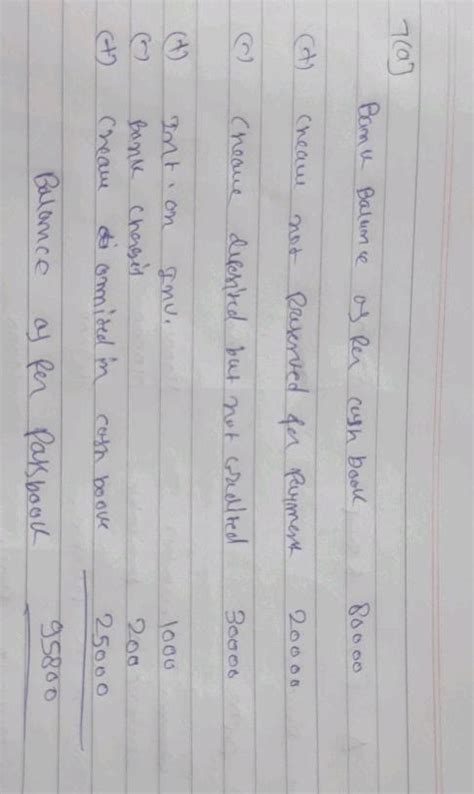 7(a)
Bank Balance as per cash book 80000
(+) cheque not presented for payment 20000
(-) cheque deposited but not credited 30000
(+) Int. on Inv. 1000
(-) Bank charges 200
(+) cheque omitted in cash book 25000
Balance as per Passbook 95800